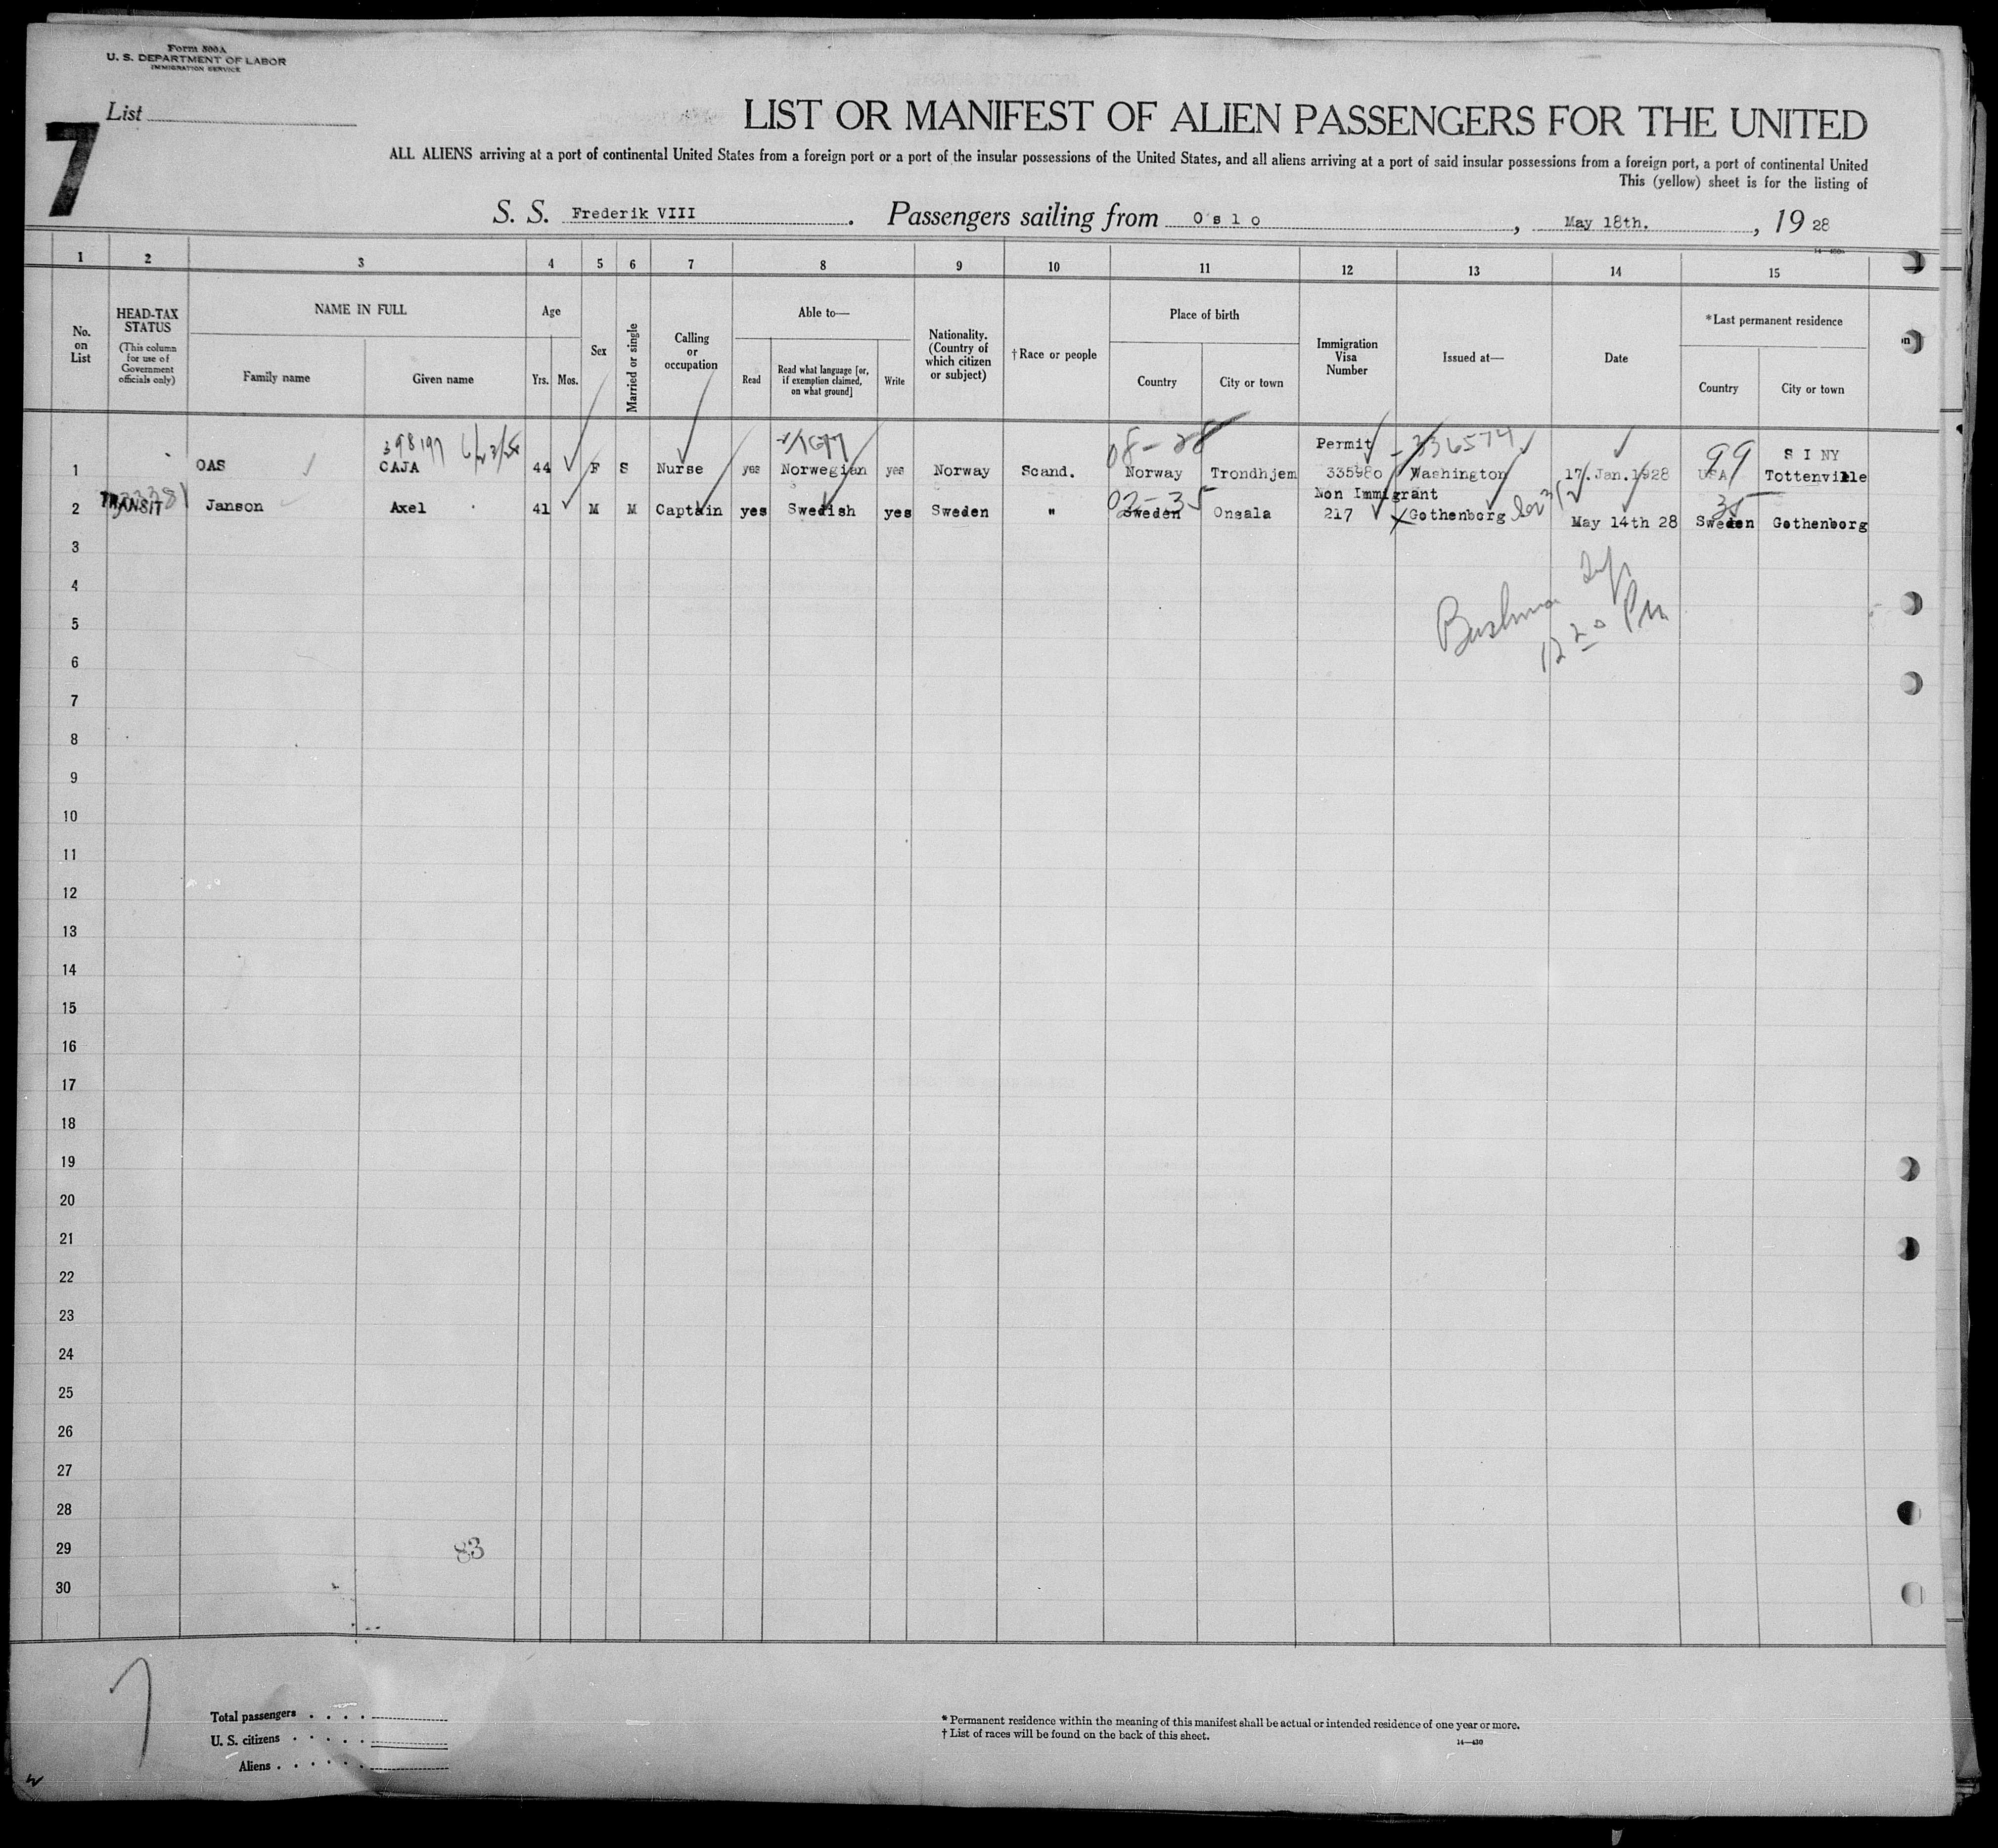 Form 500A
U. S. DEPARTMENT OF LABOR
IMMIGRATION SERVICE
List
7
LIST OR MANIFEST OF ALIEN PASSENGERS FOR THE UNITED
ALL ALIENS arriving at a port of continental United States from a foreign port or a port of the insular possessions of the United States, and all aliens arriving at a port of said insular possessions from a foreign port, a port of continental United
This (yellow) sheet is for the listing of
S. S. Frederik VIII. Passengers sailing from Oslo, May 18th., 1928
1 2 3 4 5 6 7 8 9 10 11 12 13 14 15
No. on List
HEAD-TAX STATUS (This column for use of Government officials only)
NAME IN FULL
Family name
Given name
Age
Yrs. Mos.
Sex
Married or single
Calling or occupation
Able to—
Read
Read what language [or, if exemption claimed, on what ground]
Write
Nationality. (Country of which citizen or subject)
†Race or people
Place of birth
Country
City or town
Immigration Visa Number
Issued at—
Date
*Last permanent residence
Country
City or town
398197 08-28 Permit 336574 99 S I NY
1 OAS CAJA 44 F S Nurse yes Norwegian yes Norway Scand. Norway Trondhjem 335980 Washington 17. Jan. 1928 USA Tottenville
TRANSIT 02-35 Non Immigrant 35
2 Janson Axel 41 M M Captain yes Swedish yes Sweden " Sweden Onsala 217 Gothenborg May 14th 28 Sweden Gothenborg
3
4
5
6
12 20 Pm
7
8
9
10
11
12
13
14
15
16
17
18
19
20
21
22
23
24
25
26
27
28
29
83
30
7
Total passengers
U. S. citizens
Aliens
* Permanent residence within the meaning of this manifest shall be actual or intended residence of one year or more.
† List of races will be found on the back of this sheet.
14—430